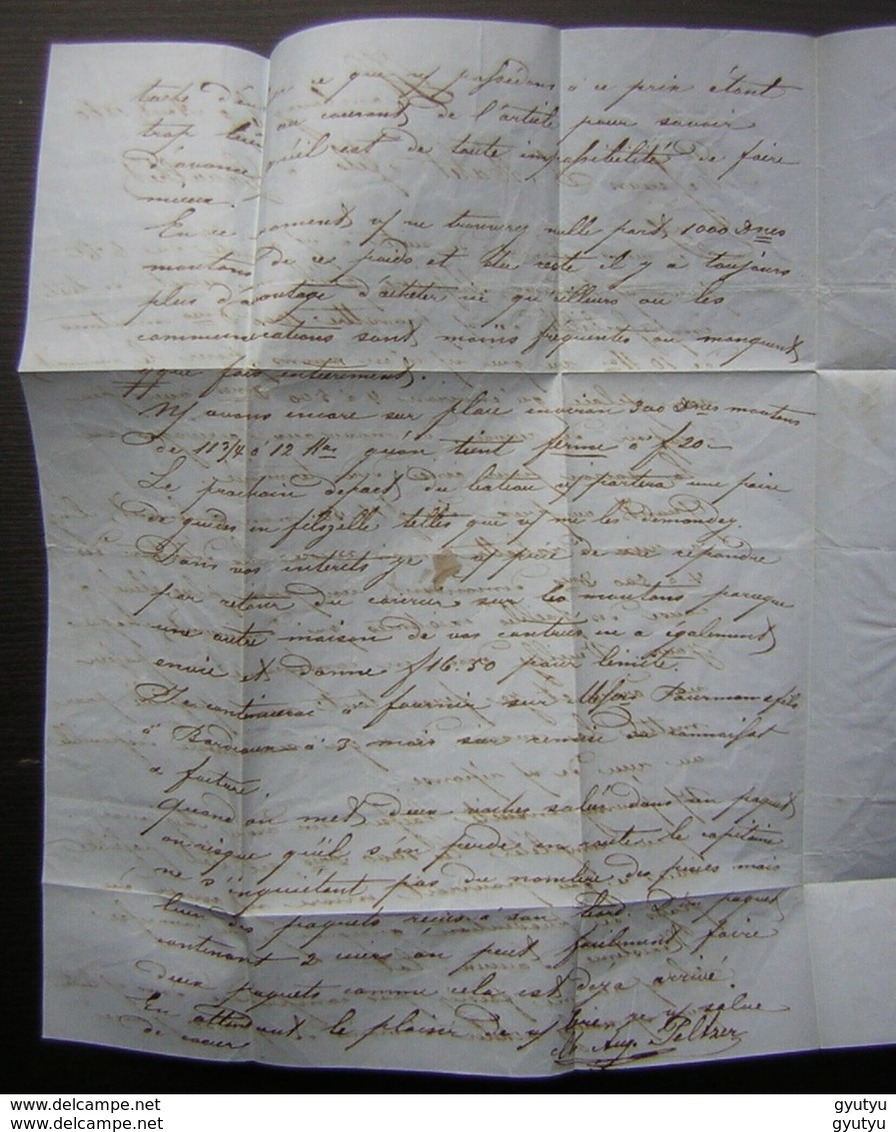 ce que ns possedons à ce prix étant
trop bien au courant de l'article pour savoir
d'avance qu'il est de toute impossibilité de faire
mieux.
En ce moment vs ne trouverez nulle part 1000 Dnes
moutons de ce poids et du reste il y a toujours
plus d'avantage d'acheter ici qu'ailleurs ou les
communications sont moins frequentes ou manquent
qque fois entierement.
Ns avons encore sur place environ 300 Dnes moutons
de 11 3/4 à 12 qu'on tient ferme à f 20.-
Le prochain depart du bateau vs portera une paire
de guides in filozelle telles que vs me les demandez.
Dans vos interets je vs prie de me répondre
par retour du courier sur les moutons parceque
une autre maison de vos contrées en a également
envie et donne f 16.50 pour limite.
Je continuerai à fournir sur & fils
à Bordeaux à 3 mois sur remise du connaisst
& facture.
Quand on met deux vaches salés dans un paquet
on risque qu'il s'en perde en route le capitaine
ne s'inquiétant pas du nombre des pièces mais
bien des paquets recus à son bord. D'un paquet
contenant 2 cuirs on peut facilement faire
deux paquets comme cela est deja arrivé.
En attendant le plaisir de vs lire, je vs salue
de coeur
Aug. Peltzer
gyutyu
gyutyu